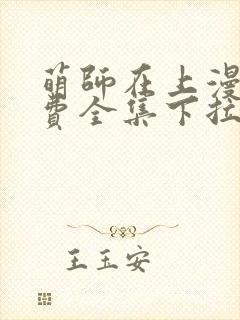 萌師在上漫
費全集下拉
王玉安